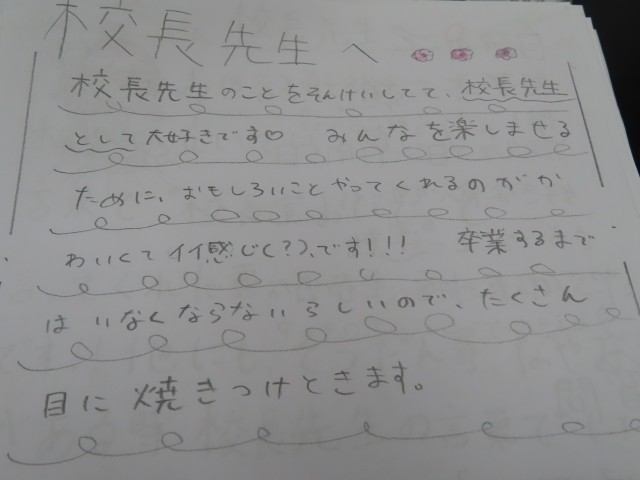 校長先生へ
校長先生のことをそんけいしてて、校長先生
として大好きです♡ みんなを楽しませる
ために、おもしろいことやってくれるのがか
わいくてイイ感じ(?)、です!!! 卒業するまで
はいなくならないらしいので、たくさん
目に焼きつけときます。